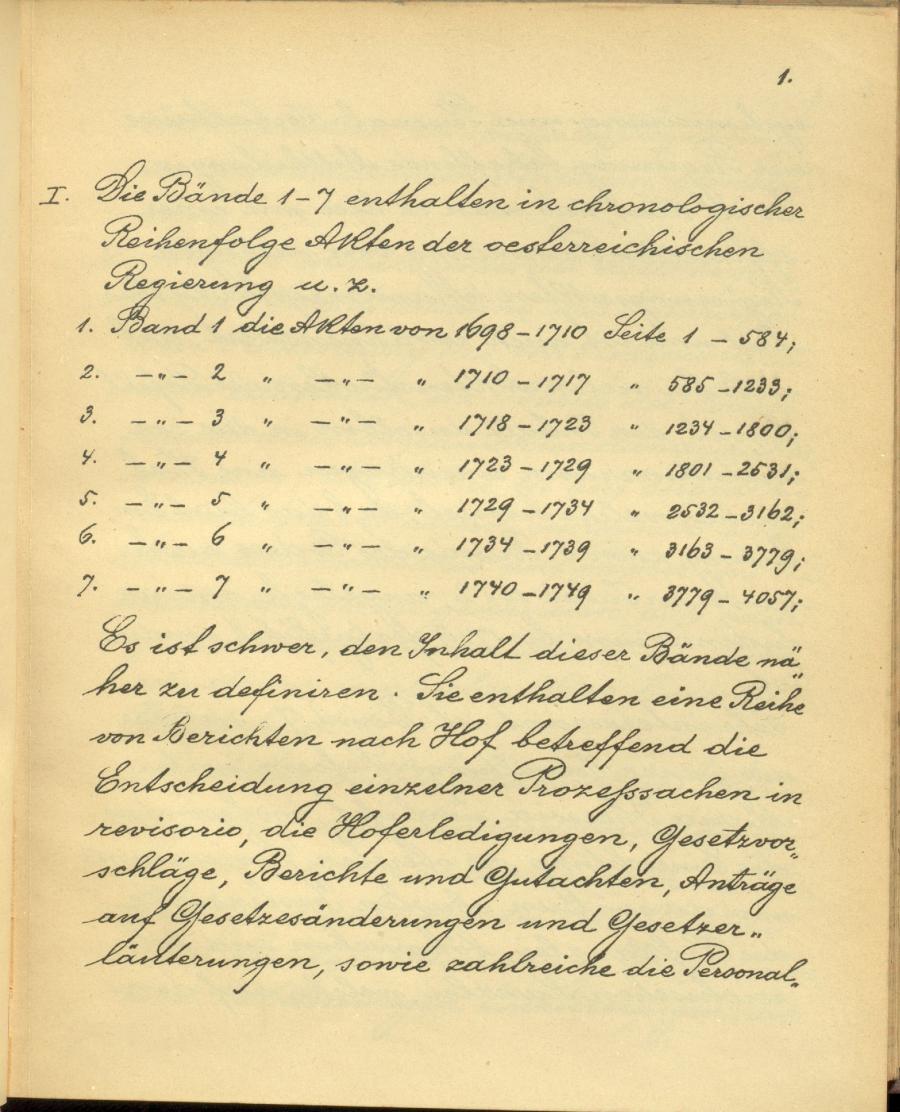 1.
I. Die Bände 1-7 enthalten in chronologischer
Reihenfolge Akten der oesterreichischen
Regierung u. z.
1. Band 1 die Akten von 1698-1710 Seite 1 - 584;
2. -„- 2 „ -„- „ 1710-1717 „ 585-1233;
3. -„- 3 „ -„- „ 1718-1723 „ 1234-1800;
4. -„- 4 „ -„- „ 1723-1729 „ 1801-2531;
5. -„- 5 „ -„- „ 1729-1734 „ 2532-3162;
6. -„- 6 „ -„- „ 1734-1739 „ 3163-3779;
7. -„- 7 „ -„- „ 1740-1749 „ 3779-4057;
Es ist schwer, den Inhalt dieser Bände nä„
her zu definiren. Sie enthalten eine Reihe
von Berichten nach Hof betreffend die
Entscheidung einzelner Prozeßsachen in
revisorio, die Hoferledigungen, Gesetzvor„
schläge, Berichte und Gutachten, Anträge
auf Gesetzesänderungen und Gesetzer„
läuterungen, sowie zahlreiche die Personal„